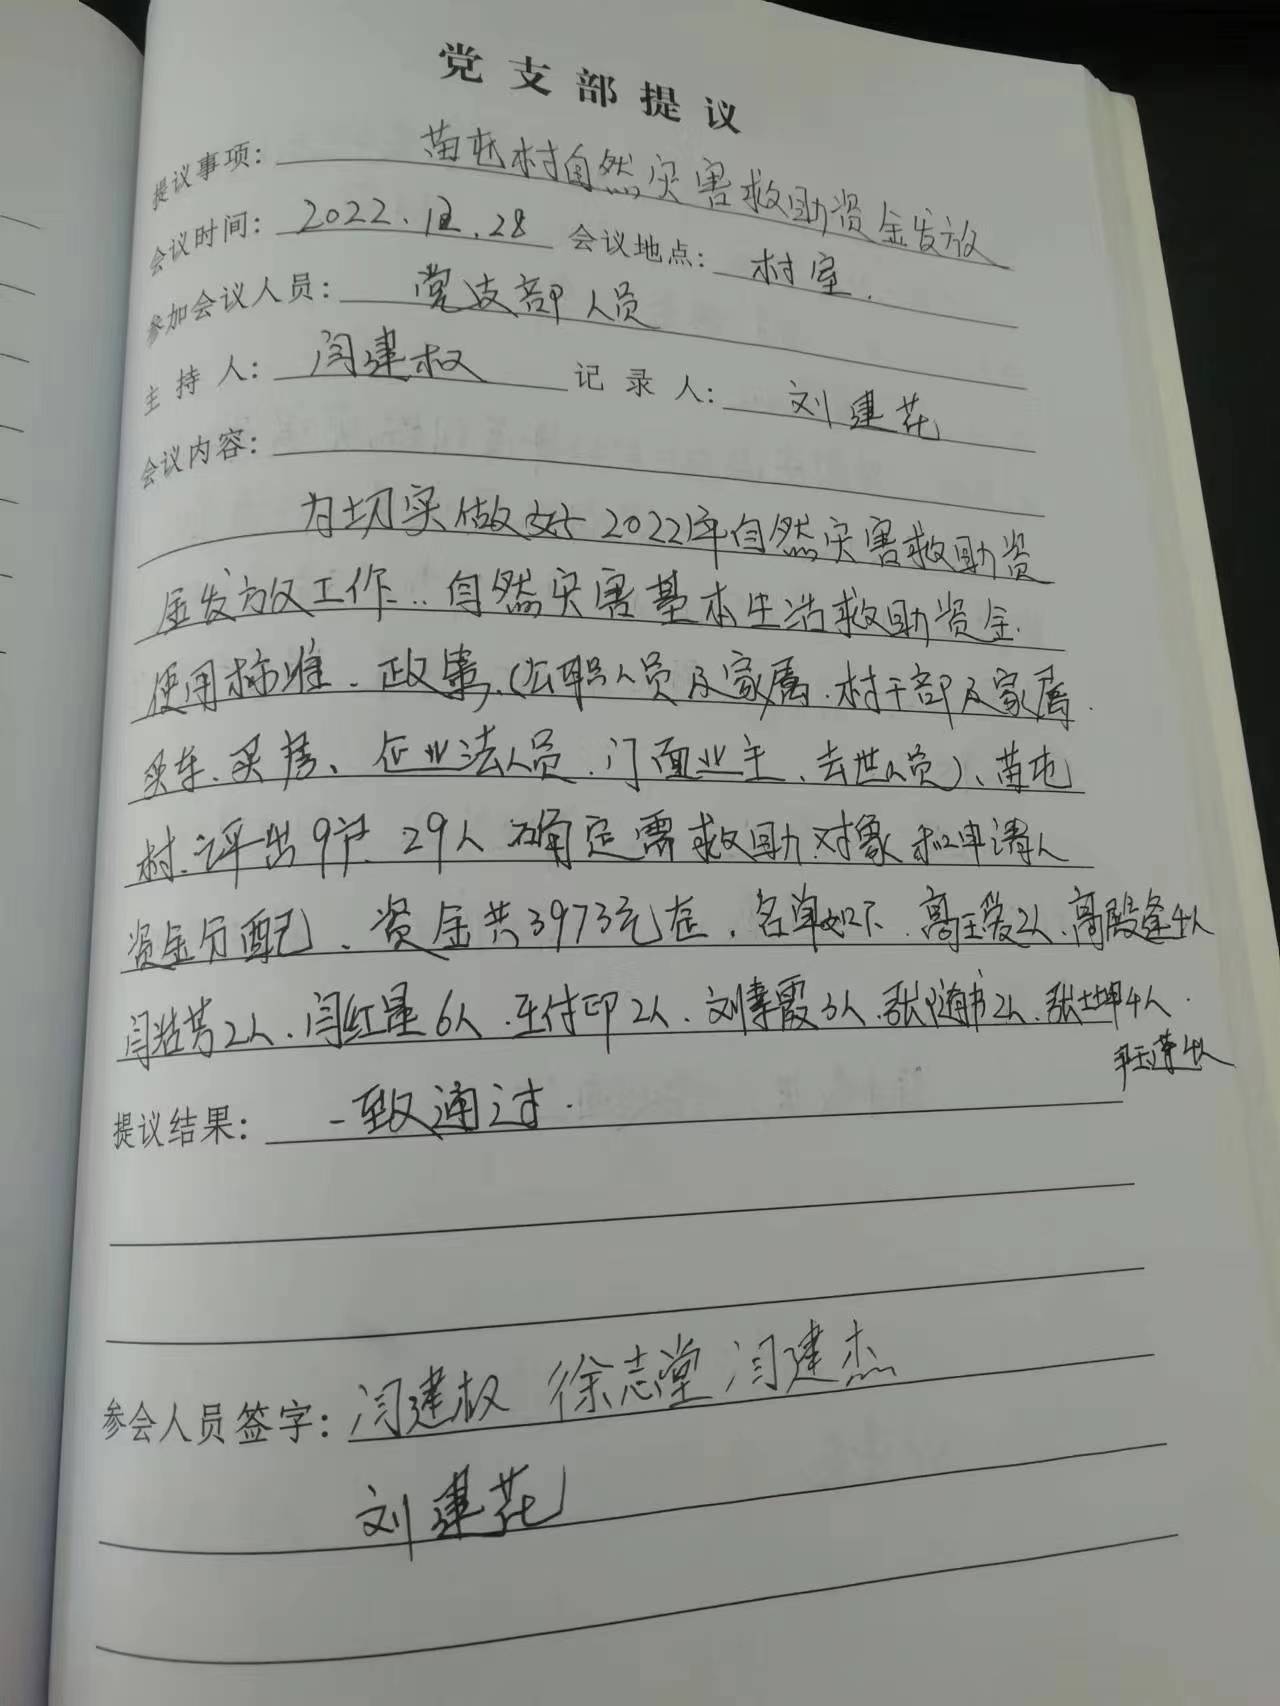 党支部提议
提议事项: 苗屯村自然灾害救助资金发放
会议时间: 2022.12.28 会议地点: 村室.
参加会议人员: 党支部人员
主持人: 闫建权 记录人: 刘建花
会议内容:
为切实做好2022年自然灾害救助资
金发放工作..自然灾害基本生活救助资金.
使用标准.政策,(公职人员及家属.村干部及家属.
买车、买房、企业法人员.门面业主、去世人员)、苗屯
村.评出9户.29人确定需救助.对象和申请人
资金分配、资金共3973元在,名单如下.高玉爱2人.高殿逢4人
闫法芳2人.闫红星6人.王付印2人.刘孝霞3人.张随书2人.张土坤4人.
4人
提议结果: 一致通过.
参会人员签字: 闫建权 徐志堂 闫建杰
刘建花